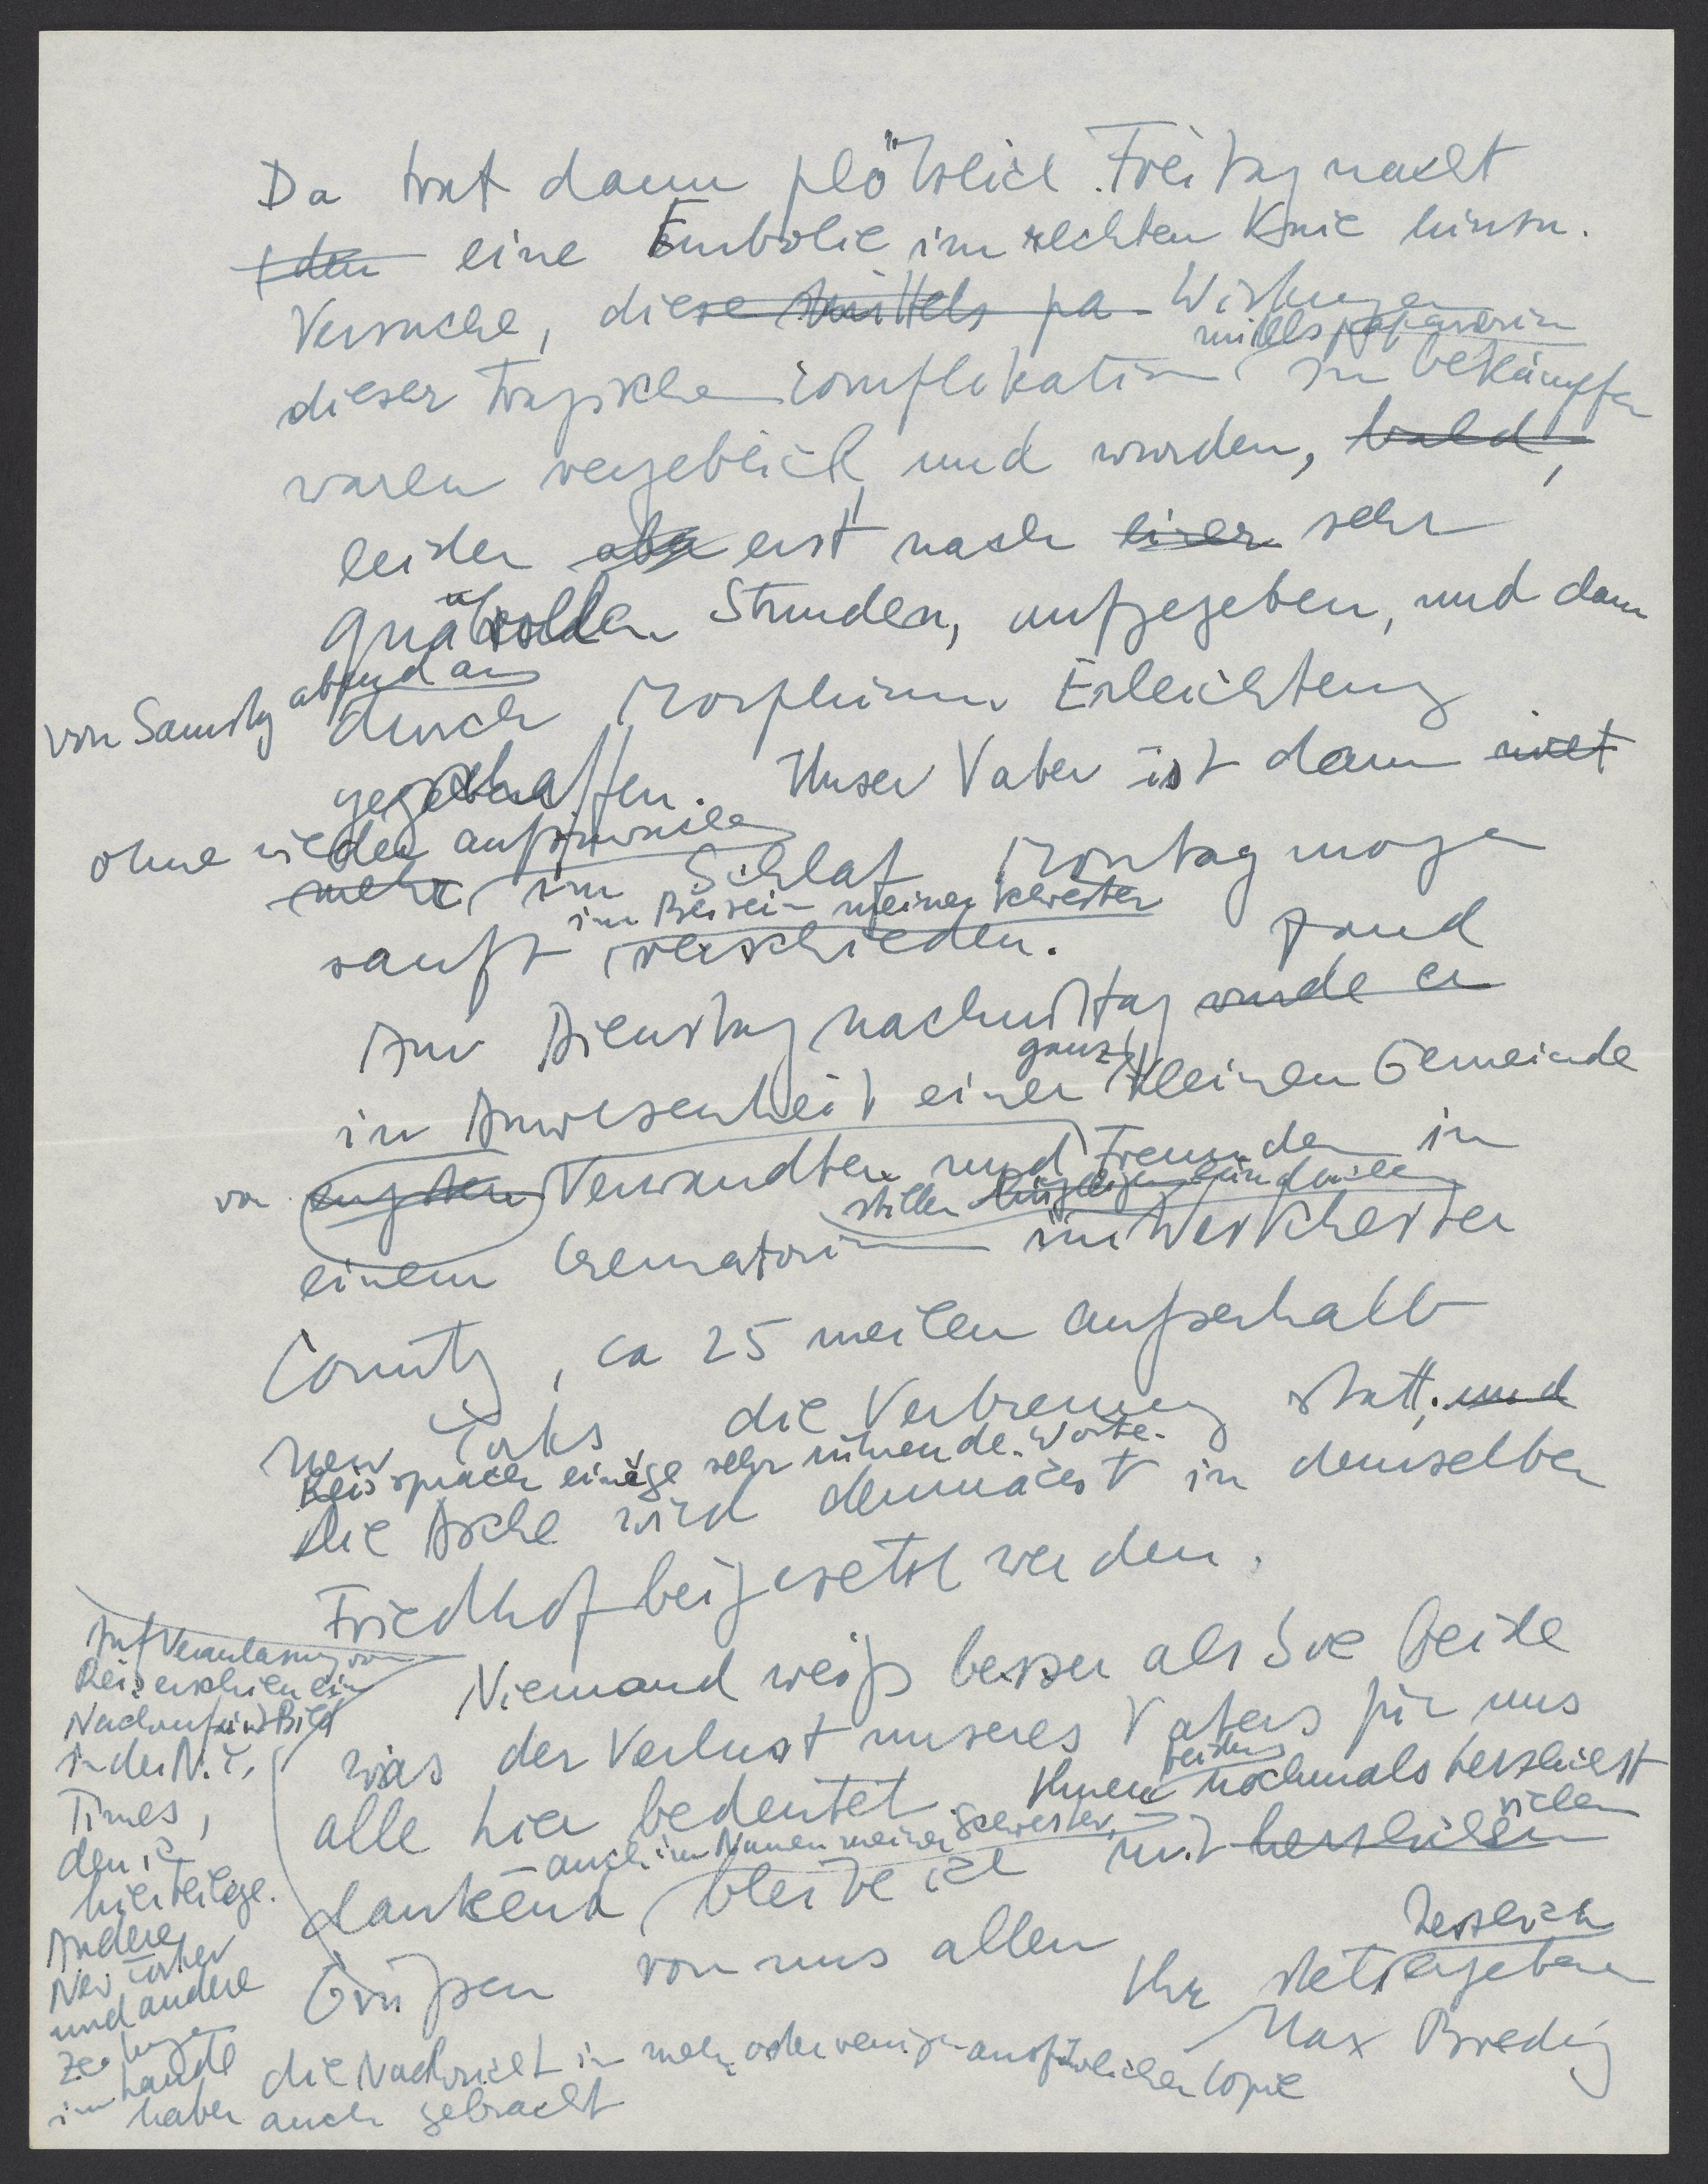 Da trat dann plötzlich Freitag nacht
den eine Embolie im rechten Knie hinzu.
Versuche, diese mittels pa Wirkungen
mittels papaverin
dieser tragischen Complikation zu bekämpfen
waren vergeblich und wurden, bald,
leider aber erst nach einer sehr
qualvollen Stunden, aufgegeben, und dann
von Samstag abend an
durch Morphium Erleichterung
geschaffen. Unser Vater ist dann nicht
ohne wieder aufzuwachen
mehr im Schlaf Montag morgen
im Beisein meiner Schwester
sanft verschieden. fand
Am Dienstag nachmittag wurde er
ganz
in Anwesenheit einer kleinen Gemeinde
von engsten Verwandten und Freunden in
stiller
einem Crematorium im Westchester
County, ca 25 meilen außerhalb
New Yorks die Verbrennung statt. und
Reis sprach einige sehr rührende Worte.
Die Asche wird demnächst in demselben
Friedhof beigesetzt werden.
Niemand weiß besser als Sie beide
was der Verlust unseres Vaters für uns
alle hier bedeutet. Ihnen beiden nochmals herzlichst
auch im Namen meiner Schwester,
dankend, bleibe ich mit herzlichen vielen
Grüßen von uns allen
Ihr stets herzlich ergebener
Max Bredig
Auf Veranlassung von
Reis erschien ein
Nachruf mit Bild
in der N.Y.
Times,
den ich
hier beilege.
Andere
New Yorker
und andere
Zeitungen
im Lande
haben auch gebracht
die Nachricht in mehr oder weniger ausführlicher Copie